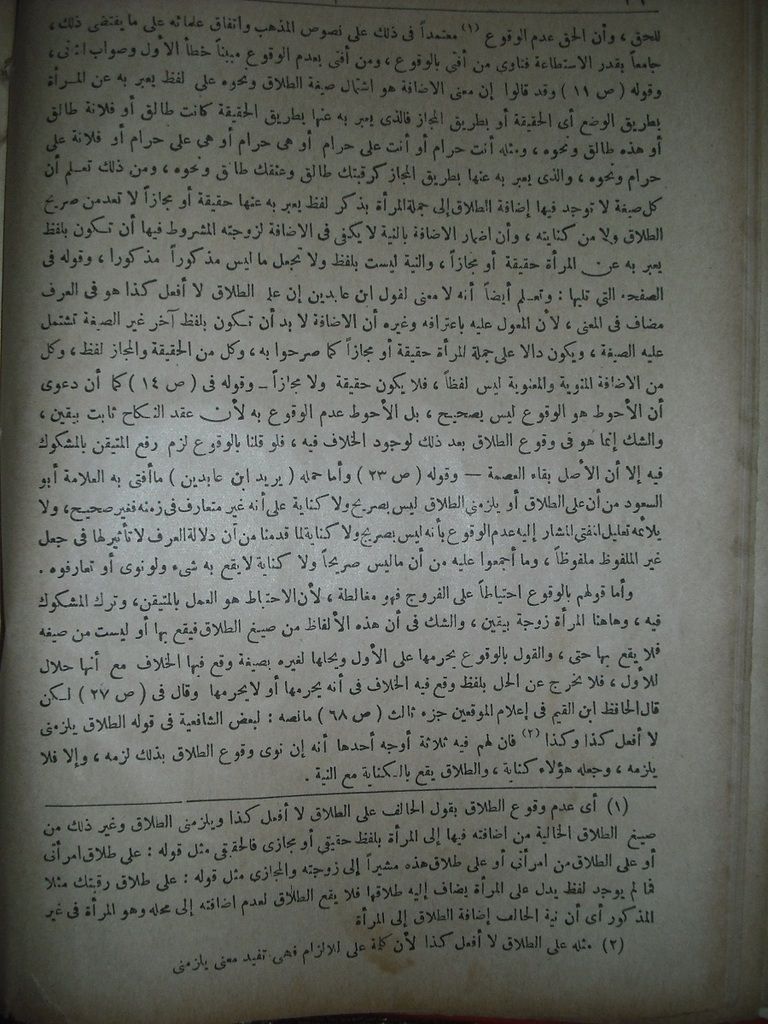 للحق ، وأن الحق عدم الوقوع (١) معتمداً فى ذلك على نصوص المذهب واتفاق علمائه على ما يقتضى ذلك ،
جامعاً بقدر الاستطاعة فتاوى من أفتى بالوقوع ، ومن أفتى بعدم الوقوع مبيناً خطأ الأول وصواب الثانى ،
وقوله ( ص ١١ ) وقد قالوا إن معنى الاضافة هو اشتمال صيغة الطلاق ونحوه على لفظ يعبر به عن المرأة
بطريق الوضع أى الحقيقة أو بطريق المجاز فالذى يعبر به عنها بطريق الحقيقة كانت طالق أو فلانة طالق
أو هذه طالق ونحوه ، ومثله أنت حرام أو أنت على حرام أو هى حرام أو هى على حرام أو فلانة على
حرام ونحوه ، والذى يعبر به عنها بطريق المجاز كرقبتك طالق وعنقك طالق ونحوه ، ومن ذلك تعلم أن
كل صيغة لا توجد فيها إضافة الطلاق إلى جملة المرأة بذكر لفظ يعبر به عنها حقيقة أو مجازاً لا تعد من صريح
الطلاق ولا من كنايته ، وأن اضمار الاضافة بالنية لا يكفى فى الاضافة لزوجته المشروط فيها أن تكون بلفظ
يعبر به عن المرأة حقيقة أو مجازاً ، والنية ليست بلفظ ولا تجعل ما ليس مذكوراً مذكورا ، وقوله فى
الصفحة التى تليها : وتعلم أيضاً أنه لا معنى لقول ابن عابدين إن على الطلاق لا أفعل كذا هو فى العرف
مضاف فى المعنى ، لأن المعول عليه باعترافه وغيره أن الاضافة لا بد أن تكون بلفظ آخر غير الصيغة تشتمل
عليه الصيغة ، ويكون دالا على جملة المرأة حقيقة أو مجازاً كما صرحوا به ، وكل من الحقيقة والمجاز لفظ ، وكل
من الاضافة المنوية والمعنوية ليس لفظاً ، فلا يكون حقيقة ولا مجازاً ــ وقوله فى ( ص ١٤ ) كما أن دعوى
أن الأحوط هو الوقوع ليس بصحيح ، بل الأحوط عدم الوقوع به لأن عقد النكاح ثابت بيقين ،
والشك إنما هو فى وقوع الطلاق بعد ذلك لوجود الخلاف فيه ، فلو قلنا بالوقوع لزم رفع المتيقن بالمشكوك
فيه إلا أن الأصل بقاء العصمة — وقوله ( ص ٢٣ ) وأما حمله ( يريد ابن عابدين ) ما أفتى به العلامة أبو
السعود من أن على الطلاق أو يلزمنى الطلاق ليس بصريح ولا كناية على أنه غير متعارف فى زمنه فغير صحيح ، ولا
يلائمه تعليل المفتى المشار إليه عدم الوقوع بأنه ليس بصريح ولا كناية لما قدمنا من أن دلالة العرف لا تأثير لها فى جعل
غير الملفوظ ملفوظاً ، وما أجمعوا عليه من أن ما ليس صريحاً ولا كناية لا يقع به شىء ولو نوى أو تعارفوه .
وأما قولهم بالوقوع احتياطاً على الفروج فهو مغالطة ، لأن الاحتياط هو العمل بالمتيقن ، وترك المشكوك
فيه ، وهاهنا المرأة زوجة بيقين ، والشك فى أن هذه الألفاظ من صيغ الطلاق فيقع بها أو ليست من صيغه
فلا يقع بها حتى ، والقول بالوقوع يحرمها على الأول ويحلها لغيره بصيغة وقع فيها الخلاف مع أنها حلال
للأول ، فلا تخرج عن الحل بلفظ وقع فيه الخلاف فى أنه يحرمها أو لا يحرمها وقال فى ( ص ٢٧ ) لكن
قال الحافظ ابن القيم فى إعلام الموقعين جزء ثالث ( ص ٦٨ ) ما نصه : لبعض الشافعية فى قوله الطلاق يلزمنى
لا أفعل كذا وكذا (٢) فان لهم فيه ثلاثة أوجه أحدها أنه إن نوى وقوع الطلاق بذلك لزمه ، وإلا فلا
يلزمه ، وجعله هؤلاء كناية ، والطلاق يقع بالكناية مع النية .
(١) أى عدم وقوع الطلاق بقول الحالف على الطلاق لا أفعل كذا ويلزمنى الطلاق وغير ذلك من
صيغ الطلاق الخالية من اضافته فيها إلى المرأة بلفظ حقيقى أو مجازى فالحقيقى مثل قوله : على طلاق امرأتى
أو على الطلاق من امرأتى أو على طلاق هذه مشيراً إلى زوجته والمجازى مثل قوله : على طلاق رقبتك مثلا
فما لم يوجد لفظ يدل على المرأة يضاف إليه طلاقها فلا يقع الطلاق لعدم اضافته إلى محله وهو المرأة فى غير
المذكور أى أن نية الحالف إضافة الطلاق إلى المرأة
(٢) مثله على الطلاق لا أفعل كذا لأن كلمة على للالزام فهى تفيد معنى يلزمنى